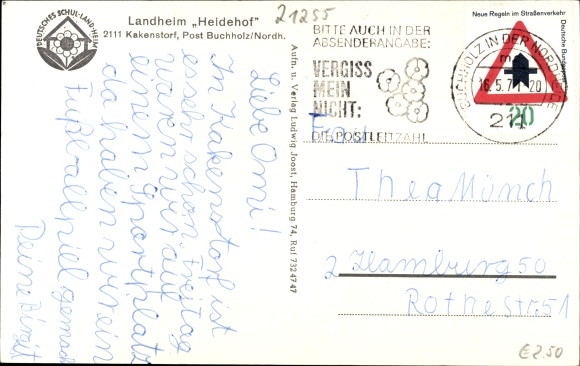 DEUTSCHES SCHUL-LANDHEIM
Landheim „Heidehof"
2111 Kakenstorf, Post Buchholz/Nordh.
21255
Liebe Omi!
In Kakenstorf ist
es sehr schön. Freitag
waren wir auf
einem Sportplatz
da haben wir ein
Fußballspiel gemacht
Deine Birgit
Aufn. u. Verlag Ludwig Joost, Hamburg 74, Ruf 7324747
BITTE AUCH IN DER
ABSENDERANGABE:
VERGISS
MEIN
NICHT:
DIE POSTLEITZAHL
BUCHHOLZ IN DER NORDHEIDE
16.5.7
20
211
Neue Regeln im Straßenverkehr
Deutsche Bundespost
20
Thea Münch
2 Hamburg 50
Rothestr 51
€2.50